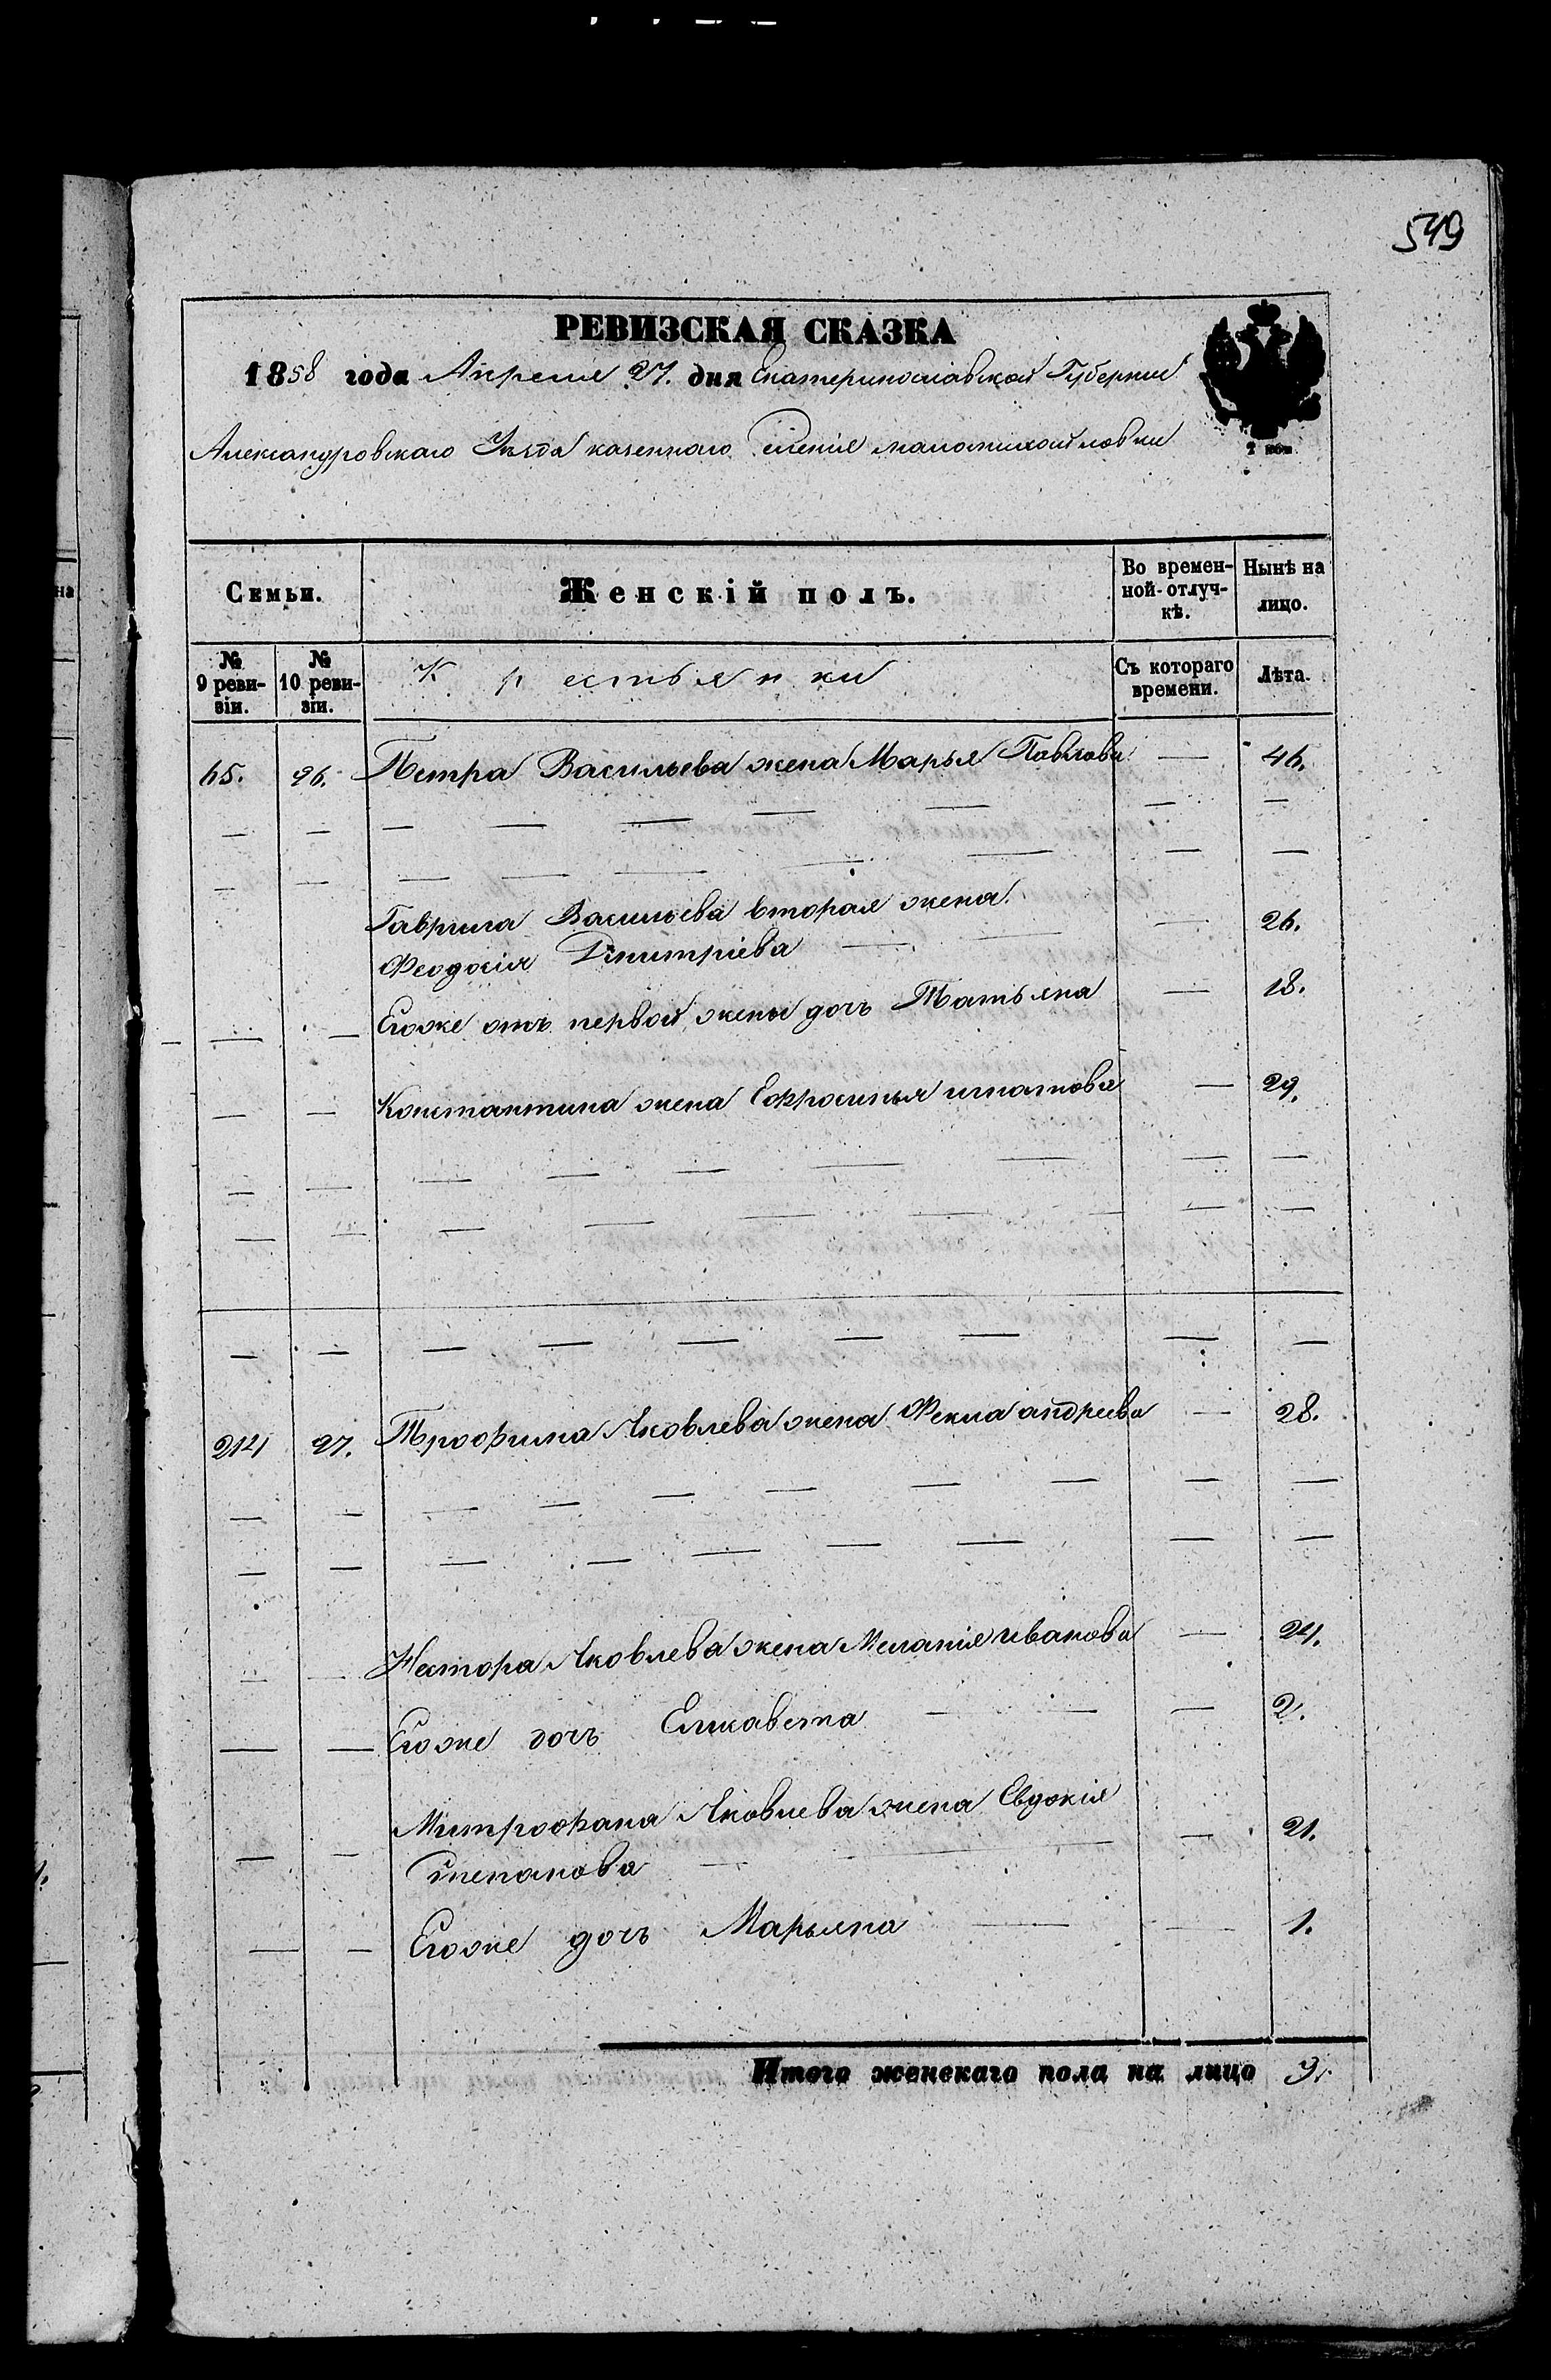 549
РЕВИЗСКАЯ СКАЗКА
1858 года Апреля 27. дня Екатеринославской Губернии
Александровскаго Уѣзда казеннаго Селенія маломихайловки
Семьи.
Женскій полъ.
Во времен-
ной-отлуч-
кѣ.
Нынѣ на
лицо.
№
9 реви-
зіи.
№
10 реви-
зіи.
Крестьянки
Съ котораго
времени.
Лѣта.
65. 26. Петра Васильева жена Марья Павлова — 46.
Гаврила Васильева вторая жена
Феодосія Дмитріева — 26.
Егоже отъ первой жены дочь Татьяна — 18.
Константина жена Ефросинья игнатова — 29.
214 27. Трофима Яковлева жена Фекла андреева — 28.
Нестора Яковлева жена Меланія иванова — 24.
Егоже дочь Елисавета — 2.
Митрофана Яковлева жена Евдокія
Степанова — 21.
Егоже дочь Марьяна — 1.
Итого женскаго пола на лицо 9.